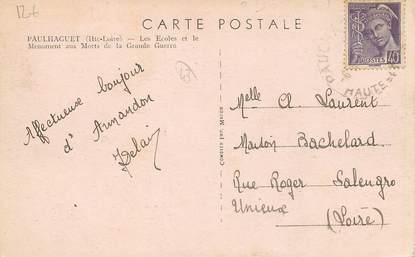 126
CARTE POSTALE
PAULHAGUET (Hte-Loire) — Les Ecoles et le
Monument aux Morts de la Grande Guerre
Affectueux bonjour
d'
POSTES
40
HAUTE
Melle Cl. Laurent
Maison Bachelard
Rue Roger Salengro
Unieux
(Loire)